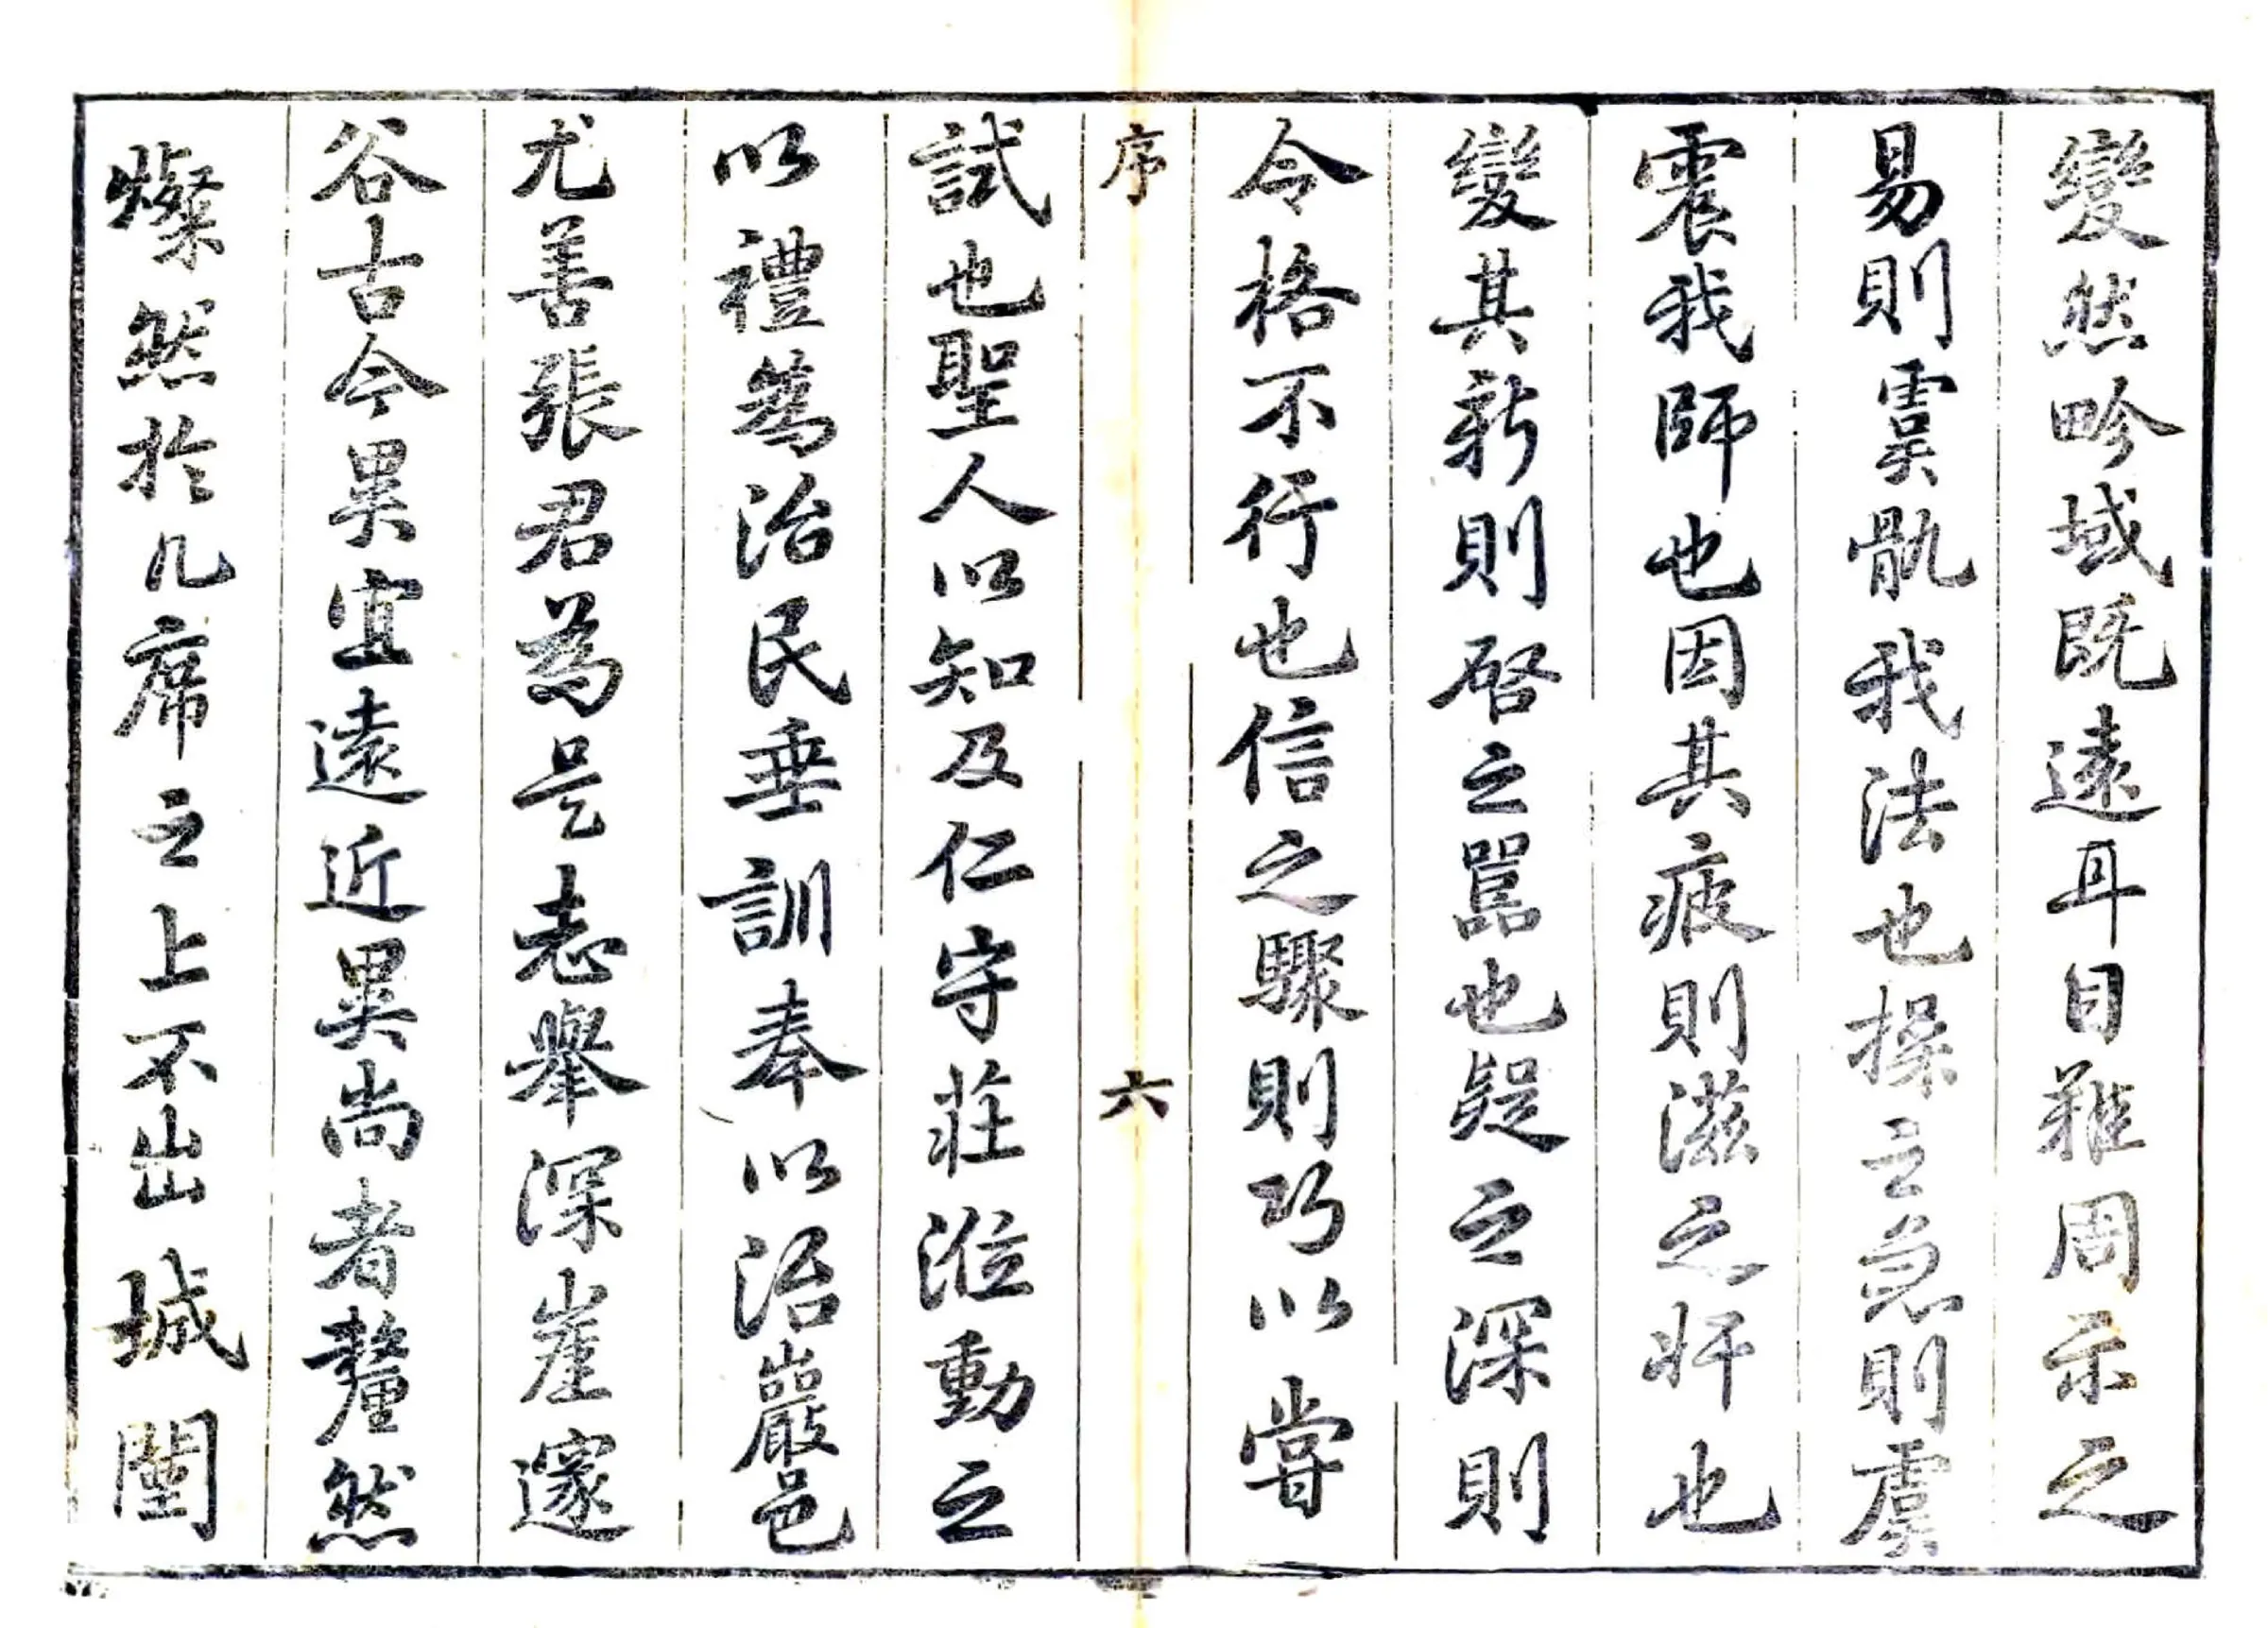 變然畛域既遠耳目難周示之
易則虞骩我法也操之急則虞
震我師也因其疲則滋之奸也
變其新則啓之囂也疑之深則
令格不行也信之驟則巧以嘗
序 六
試也聖人以知及仁守莊涖動之
以禮為治民垂訓奉以治巖邑
尤善張君為是志舉深崖邃
谷古今異宜遠近異尚者釐然
燦然於几席之上不出城闉